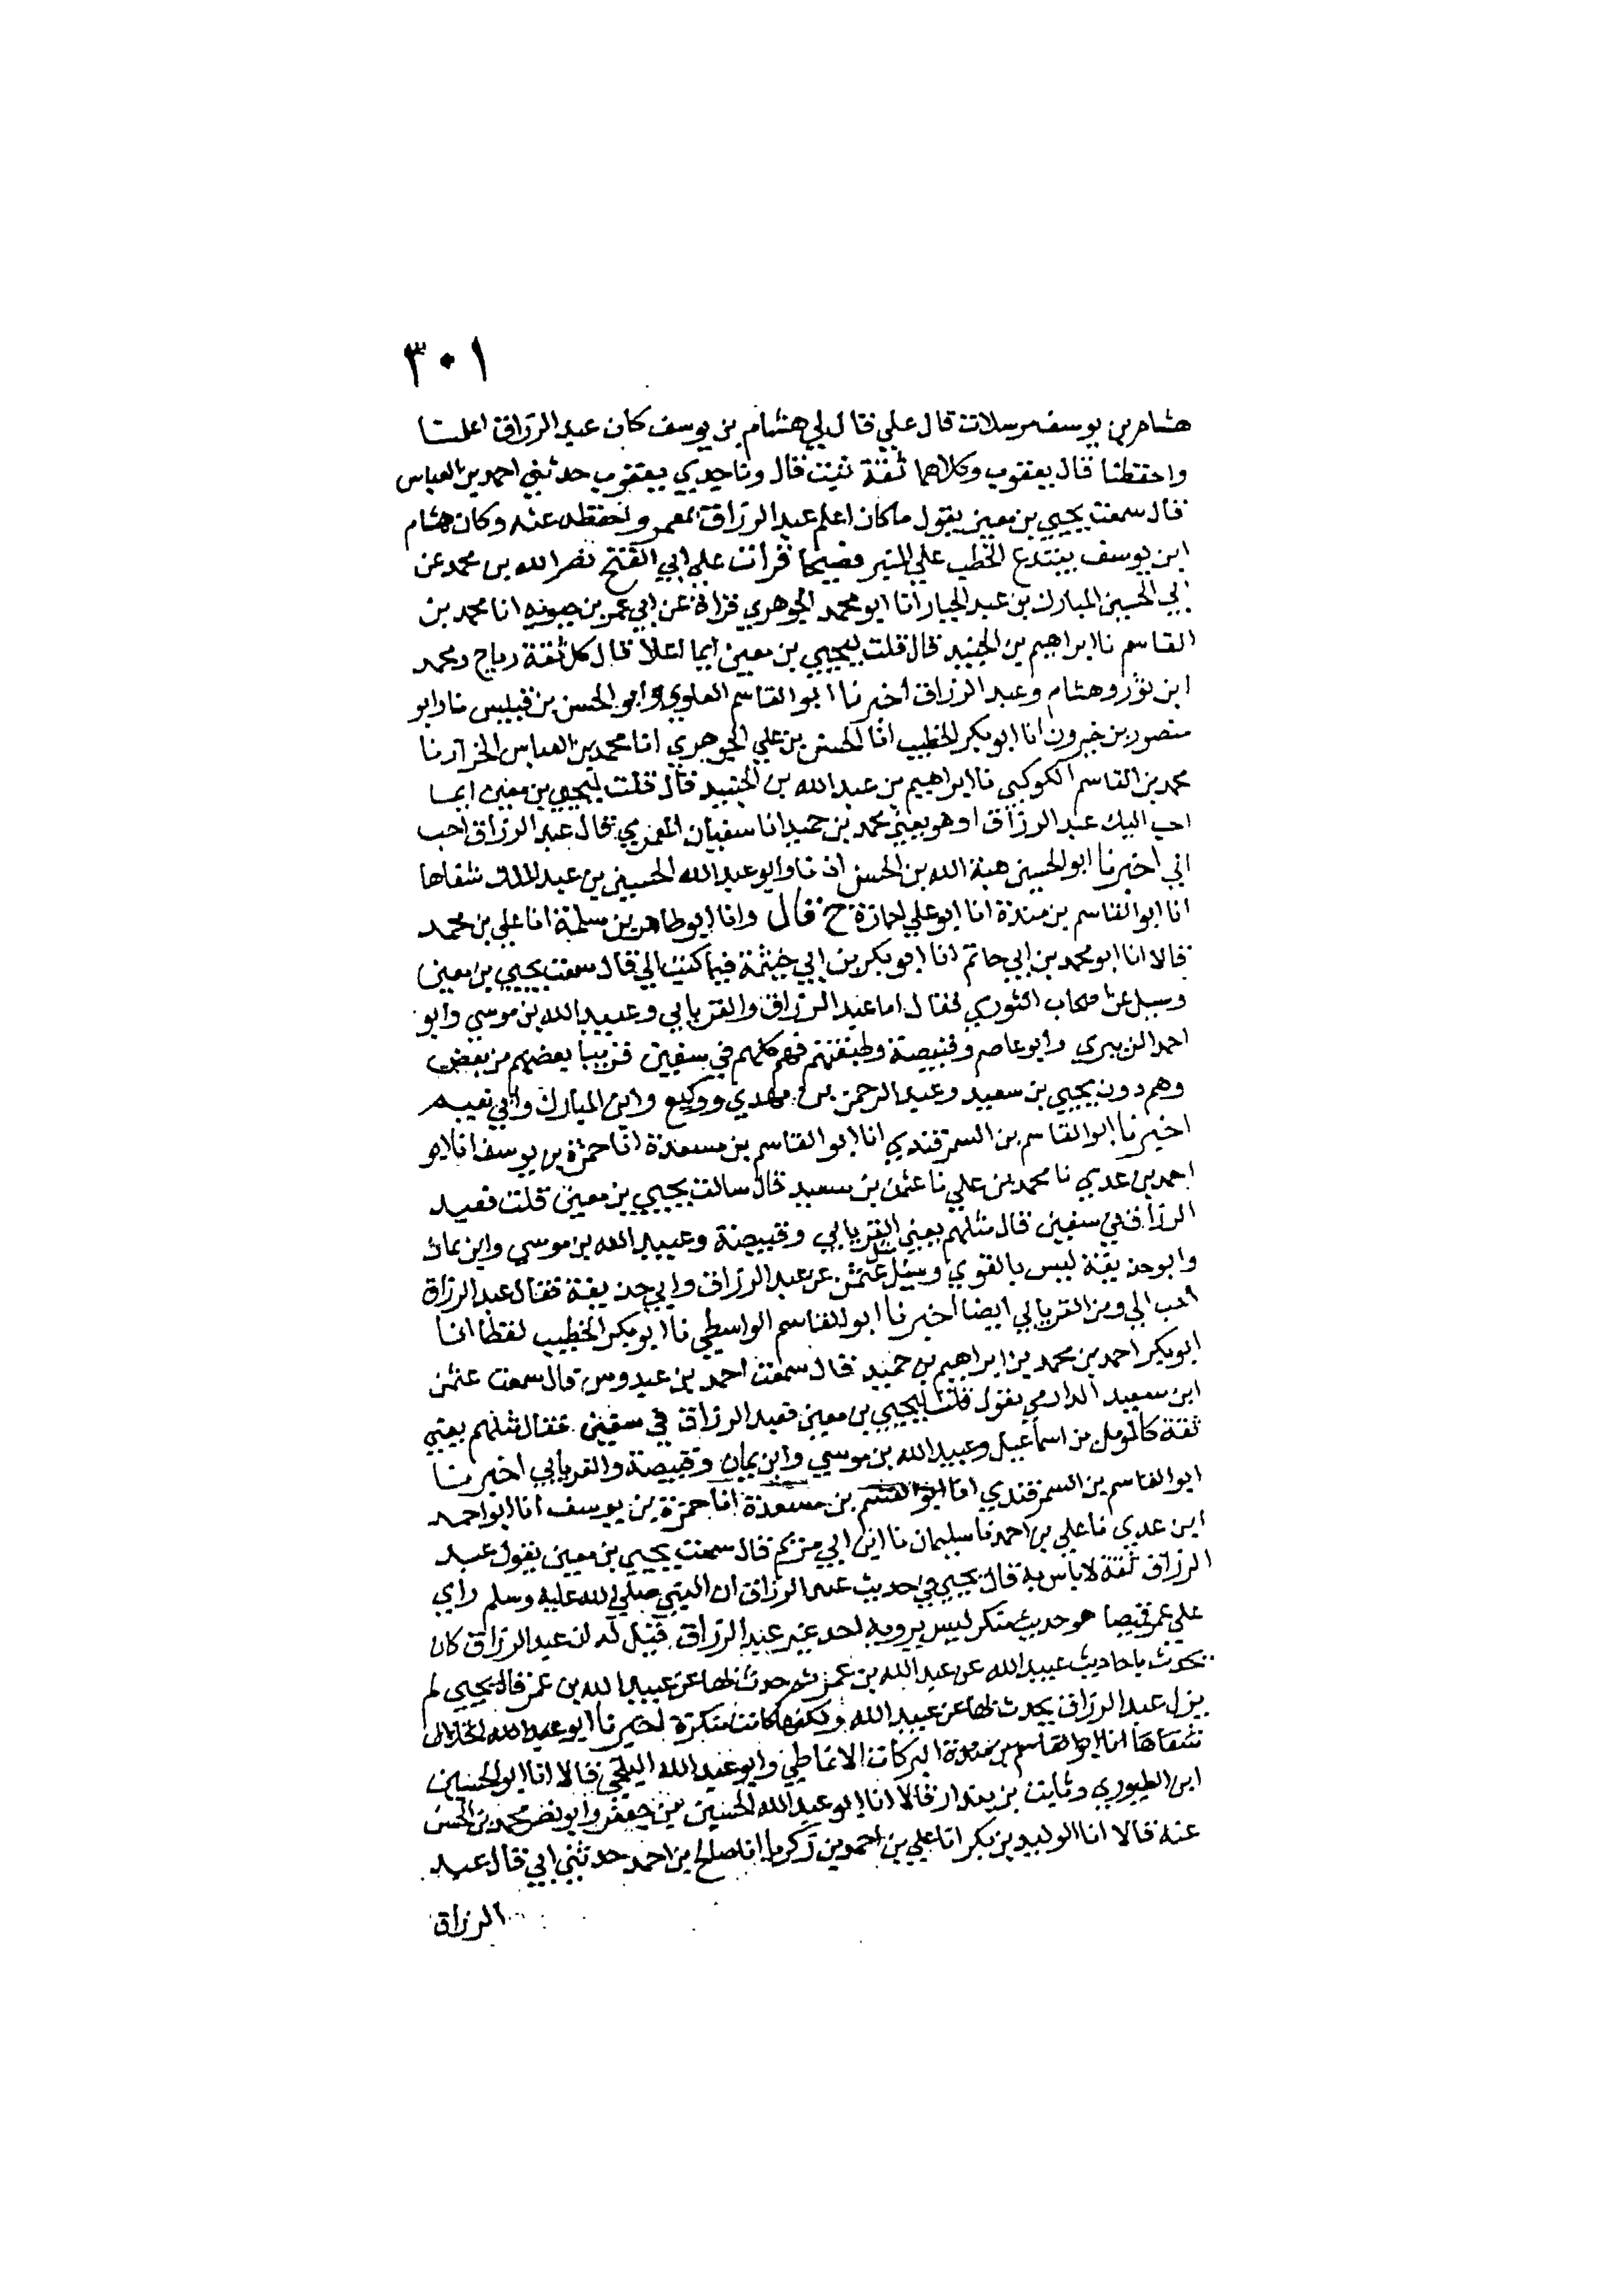 ٣٠١
هشام بن يوسف مرسلات قال علي قال لي هشام بن يوسف كان عبد الرزاق اعلمنا
واحفظنا قال يعقوب وكلاهما ثقة ثبت قال ونا جدي يعقوب حدثني احمد بن العباس
قال سمعت يحيي بن معين يقول ما كان اعلم عبد الرزاق بمعمر واحفظه عنه وكان هشام
ابن يوسف يبتدع الخطب علي المنبر فصيحا قرات علي ابي الفتح نصر الله بن محمد عن
ابي الحسين المبارك بن عبد الجبار انا ابو محمد الجوهري قراة عن ابي عمر بن حيويه انا محمد بن
القاسم نا ابراهيم بن الجنيد قال قلت ليحيي بن معين ايما اعلا قال كل ثقة رباح ومحمد
ابن ثور وهشام وعبد الرزاق اخبرنا ابو القاسم العلوي وابو الحسن بن قبيس نا وابو
منصور بن خيرون انا ابو بكر الخطيب انا الحسن بن علي الجوهري انا محمد بن العباس الخزاز نا
محمد بن القاسم الكوكبي نا ابراهيم بن عبد الله بن الجنيد قال قلت ليحيي بن معين ايما
احب اليك عبد الرزاق او هو يعني محمد بن حميد ابا سفيان المعمري فقال عبد الرزاق احب
الي اخبرنا ابو الحسين هبة الله بن الحسن اذنا وابو عبد الله الحسين بن عبد الملك شفاها
انا ابو القاسم بن مندة انا ابو علي اجازة ح قال وانا ابو طاهر بن سلمة انا علي بن محمد
قالا انا ابو محمد بن ابي حاتم انا ابو بكر بن ابي خيثمة فيما كتب الي قال سمعت يحيي بن معين
وسيل عن اصحاب الثوري فقال اما عبد الرزاق والفريابي وعبيد الله بن موسي وابو
احمد الزبيري وابو عاصم وقبيصة وطبقتهم فهم كلهم في سفين قريبا بعضهم من بعض
وهم دون يحيي بن سعيد وعبد الرحمن بن مهدي ووكيع وابن المبارك وابي نعيم
اخبرنا ابو القاسم بن السمرقندي انا ابو القاسم بن مسعدة انا حمزة بن يوسف انا ابو
احمد بن عدي نا محمد بن علي نا عثمن بن سعيد قال سالت يحيي بن معين قلت فعبد
الرزاق في سفين قال مثلهم يعني الفريابي وقبيصة وعبيد الله بن موسي وابن يمان
وابو حذيفة ليس بالقوي وسيل عثمن عن عبد الرزاق وابي حذيفة فقال عبد الرزاق
احب الي ومن الفريابي ايضا اخبرنا ابو القاسم الواسطي نا ابو بكر الخطيب لفظا انا
ابو بكر احمد بن محمد بن ابراهيم بن حميد قال سمعت احمد بن عبدوس قال سمعت عثمن
ابن سعيد الدارمي يقول قلت ليحيي بن معين فعبد الرزاق في سفين فقال مثلهم يعني
ثقة كالمومل بن اسماعيل وعبيد الله بن موسي وابن يمان وقبيصة والفريابي اخبرنا
ابو القاسم بن السمرقندي انا ابو القسم بن مسعدة انا حمزة بن يوسف انا ابو احمد
ابن عدي نا علي بن احمد نا سليمان نا ابن ابي مريم قال سمعت يحيي بن معين يقول عبد
الرزاق ثقة لا باس به قال يحيي في حديث عبد الرزاق ان النبي صلي الله عليه وسلم راي
علي عمر قميصا هو حديث منكر ليس يرويه احد غير عبد الرزاق قيل له ان عبد الرزاق كان
يحدث باحاديث عبيد الله عن عبد الله بن عمر ثم حدث بها عن عبيد الله بن عمر قال يحيي لم
يزل عبد الرزاق يحدث بها عن عبيد الله ولكنها كانت منكرة اخبرنا ابو عبد الله الخلال
شفاها انا ابو القاسم بن مندة البركات الانماطي وابو عبد الله البلخي قالا انا ابو الحسين
ابن الطيوري وثابت بن بندار قالا انا ابو عبد الله الحسين بن جعفر وابو نصر محمد بن الحسن
عنه قالا انا الوليد بن بكر انا علي بن احمد بن زكريا انا صالح بن احمد حدثني ابي قال عبد
الرزاق